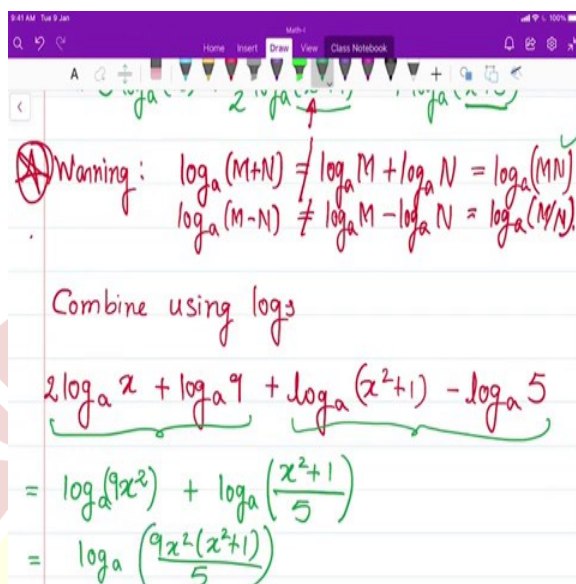 9:41 AM Tue 9 Jan
100%
Math-I
Home Insert Draw View Class Notebook
Warning: logₐ(M+N) ≠ logₐM + logₐN = logₐ(MN)
logₐ(M-N) ≠ logₐM - logₐN = logₐ(M/N).
Combine using logs
2logₐx + logₐ9 + logₐ(x²+1) - logₐ5
= logₐ(9x²) + logₐ((x²+1)/5)
= logₐ(9x²(x²+1)/5)